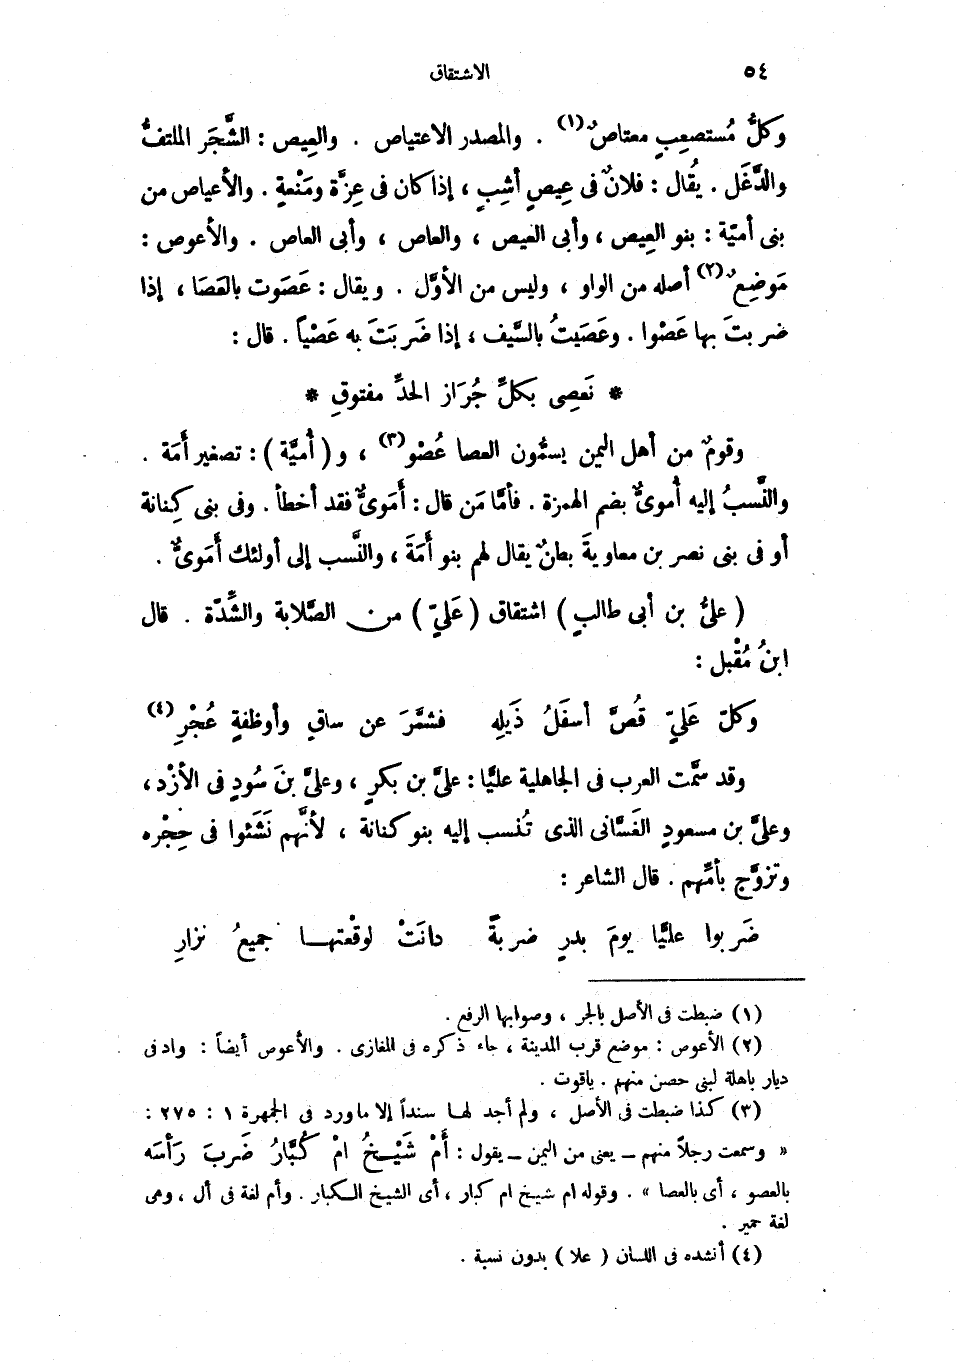 ٥٤
الاشتقاق
وكلُّ مُستصعِبٍ معتاصٌ(١) . والمصدر الاعتياص . والعِيص : الشَّجَر الملتفُّ
والدَّغَل . يُقال : فلانٌ فى عِيصٍ أشِبٍ ، إذا كان فى عِزَّة ومَنْعةٍ . والأعياص من
بنى أميّة : بنو العِيص ، وأبى العيص ، والعاص ، وأبى العاص . والأعوص :
مَوضِعٌ(٢) أصله من الواو ، وليس من الأوَّل . ويقال : عَصَوت بالعَصَا ، إذا
ضربتَ بها عَصْوا . وعَصَيتُ بالسَّيف ، إذا ضَربَتَ به عَصْياً . قال :
* نَعصِى بكلِّ جُرَاز الحدِّ مفتوقِ *
وقومٌ من أهل اليمن يسمُّون العصا عُصْو(٣) ، و ( أُميَّة ) : تصغير أَمَة .
والنَّسبُ إليه أُموىٌّ بضم الهمزة . فأمَّا مَن قال : أَمَوىٌّ فقد أخطأ . وفى بنى كِنانة
أو فى بنى نصر بن معاويةَ بطنٌ يقال لهم بنو أَمَةَ ، والنَّسب إلى أولئك أَمَوىٌّ .
( علىُّ بن أبى طالبٍ ) اشتقاق ( عَلِيّ ) من الصَّلابة والشِّدّة . قال
ابنُ مُقْبل :
وكلّ عَلِيّ قُصَّ أسفَلُ ذَيلِه فشمَّرَ عن ساقٍ وأوظفةٍ عُجْرِ(٤)
وقد سمَّت العرب فى الجاهلية عليًّا : علىَّ بن بكرٍ ، وعلىَّ بنَ سُودٍ فى الأزْد ،
وعلىَّ بن مسعودٍ الغَسَّانى الذى تُنسب إليه بنو كنانة ، لأنَّهم نَشَئوا فى حِجْره
وتزوَّج بأمِّهم . قال الشاعر :
ضَربوا عليًّا يومَ بدرٍ ضربةً دانَتْ لوقْعتها جميعُ نزارِ
(١) ضبطت فى الأصل بالجر ، وصوابها الرفع .
(٢) الأعوص : موضع قرب المدينة ، جاء ذكره فى المغازى . والأعوص أيضاً : واد فى
ديار باهلة لبنى حصن منهم . ياقوت .
(٣) كذا ضبطت فى الأصل ، ولم أجد لها سنداً إلا ماورد فى الجمهرة ١ : ٢٧٥ :
« وسمعت رجلاً منهم – يعنى من اليمن – يقول : أَمْ شَيْخُ امْ كُبَّارُ ضَربَ رَأْسَه
بالعصو ، أى بالعصا » . وقوله ام شيخ ام كبار ، أى الشيخ الكبار . وأم لغة فى أل ، وهى
لغة حمير .
(٤) أنشده فى اللسان ( علا ) بدون نسبة .